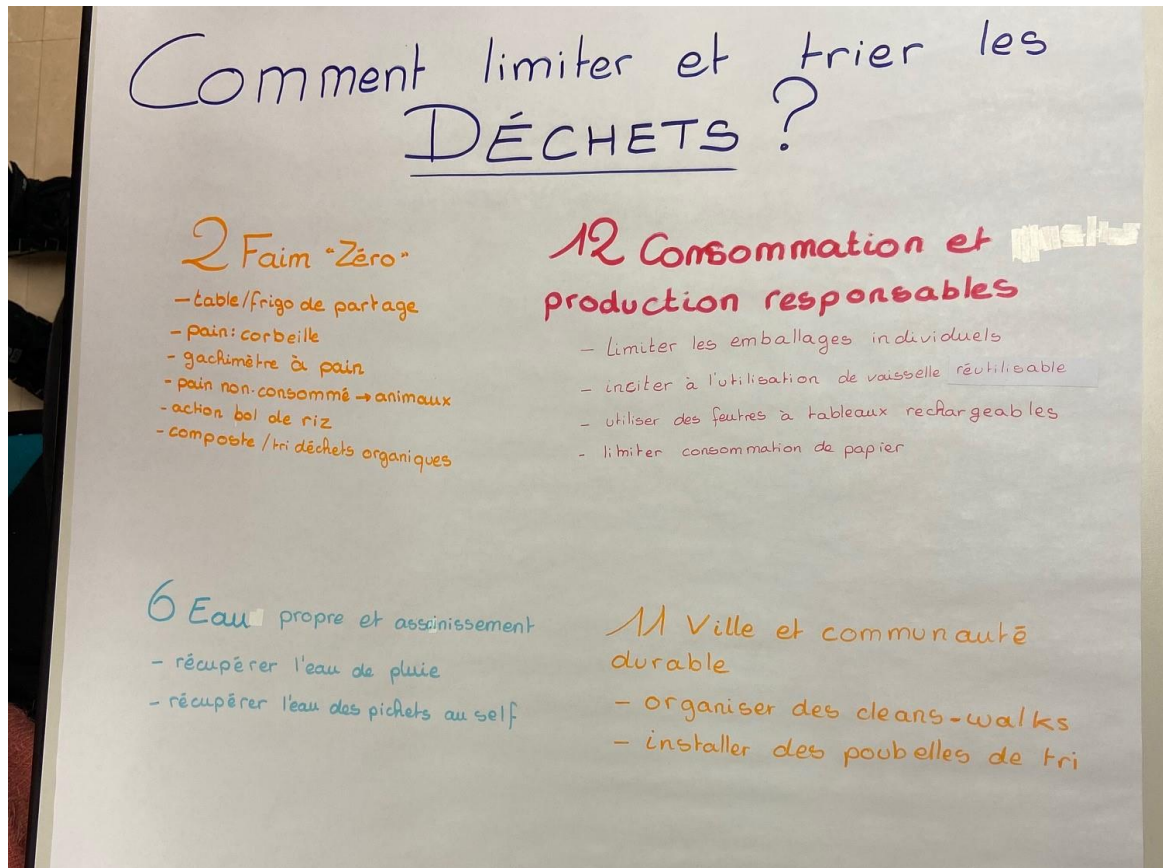 Comment limiter et trier les
DÉCHETS ?
2 Faim "Zéro"
- table/frigo de partage
- pain: corbeille
- gachimètre à pain
- pain non-consommé → animaux
- action bol de riz
- composte / tri déchets organiques
12 Consommation et
production responsables
- Limiter les emballages individuels
- inciter à l'utilisation de vaisselle réutilisable
- utiliser des feutres à tableaux rechargeables
- limiter consommation de papier
6 Eau propre et assainissement
- récupérer l'eau de pluie
- récupérer l'eau des pichets au self
11 Ville et communauté
durable
- organiser des cleans-walks
- installer des poubelles de tri